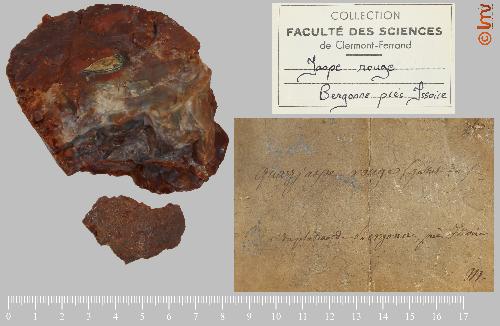 COLLECTION
FACULTÉ DES SCIENCES
de Clermont-Ferrand
Jaspe rouge
Bergonne près Issoire
© lmv
quarz jaspe rouge
près
0 1 2 3 4 5 6 7 8 9 10 11 12 13 14 15 16 17